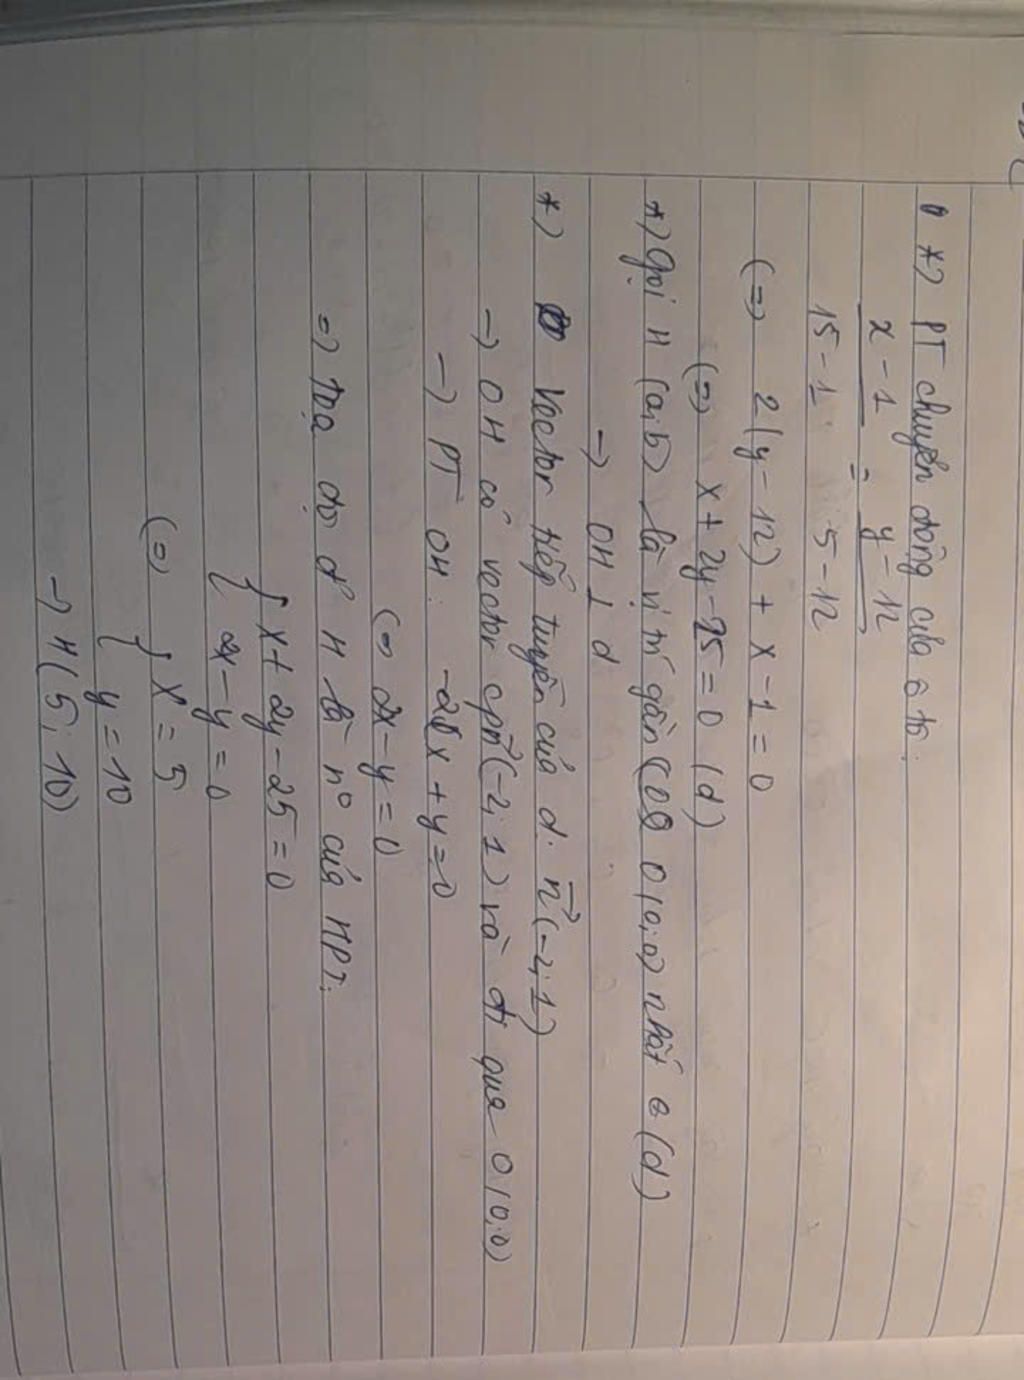 *) PT chuyển động của ô tô:
x - 1 = y - 12
15 - 1 5 - 12
(=) 2(y - 12) + x - 1 = 0
(=) x + 2y - 25 = 0 (d)
*) Gọi H (a; b) là vị trí gần O(0; 0) nhất ∈ (d)
-> OH ⊥ d
*) Vector tiếp tuyến của d: n→(-2; 1)
-> OH có vector cpn→(-2; 1) và đi qua O(0; 0)
-> PT OH: -2x + y = 0
(=) 2x - y = 0
=> Tọa độ đ' H là n° của HPT:
{ x + 2y - 25 = 0
2x - y = 0
(=) { x = 5
y = 10
-> H(5; 10)